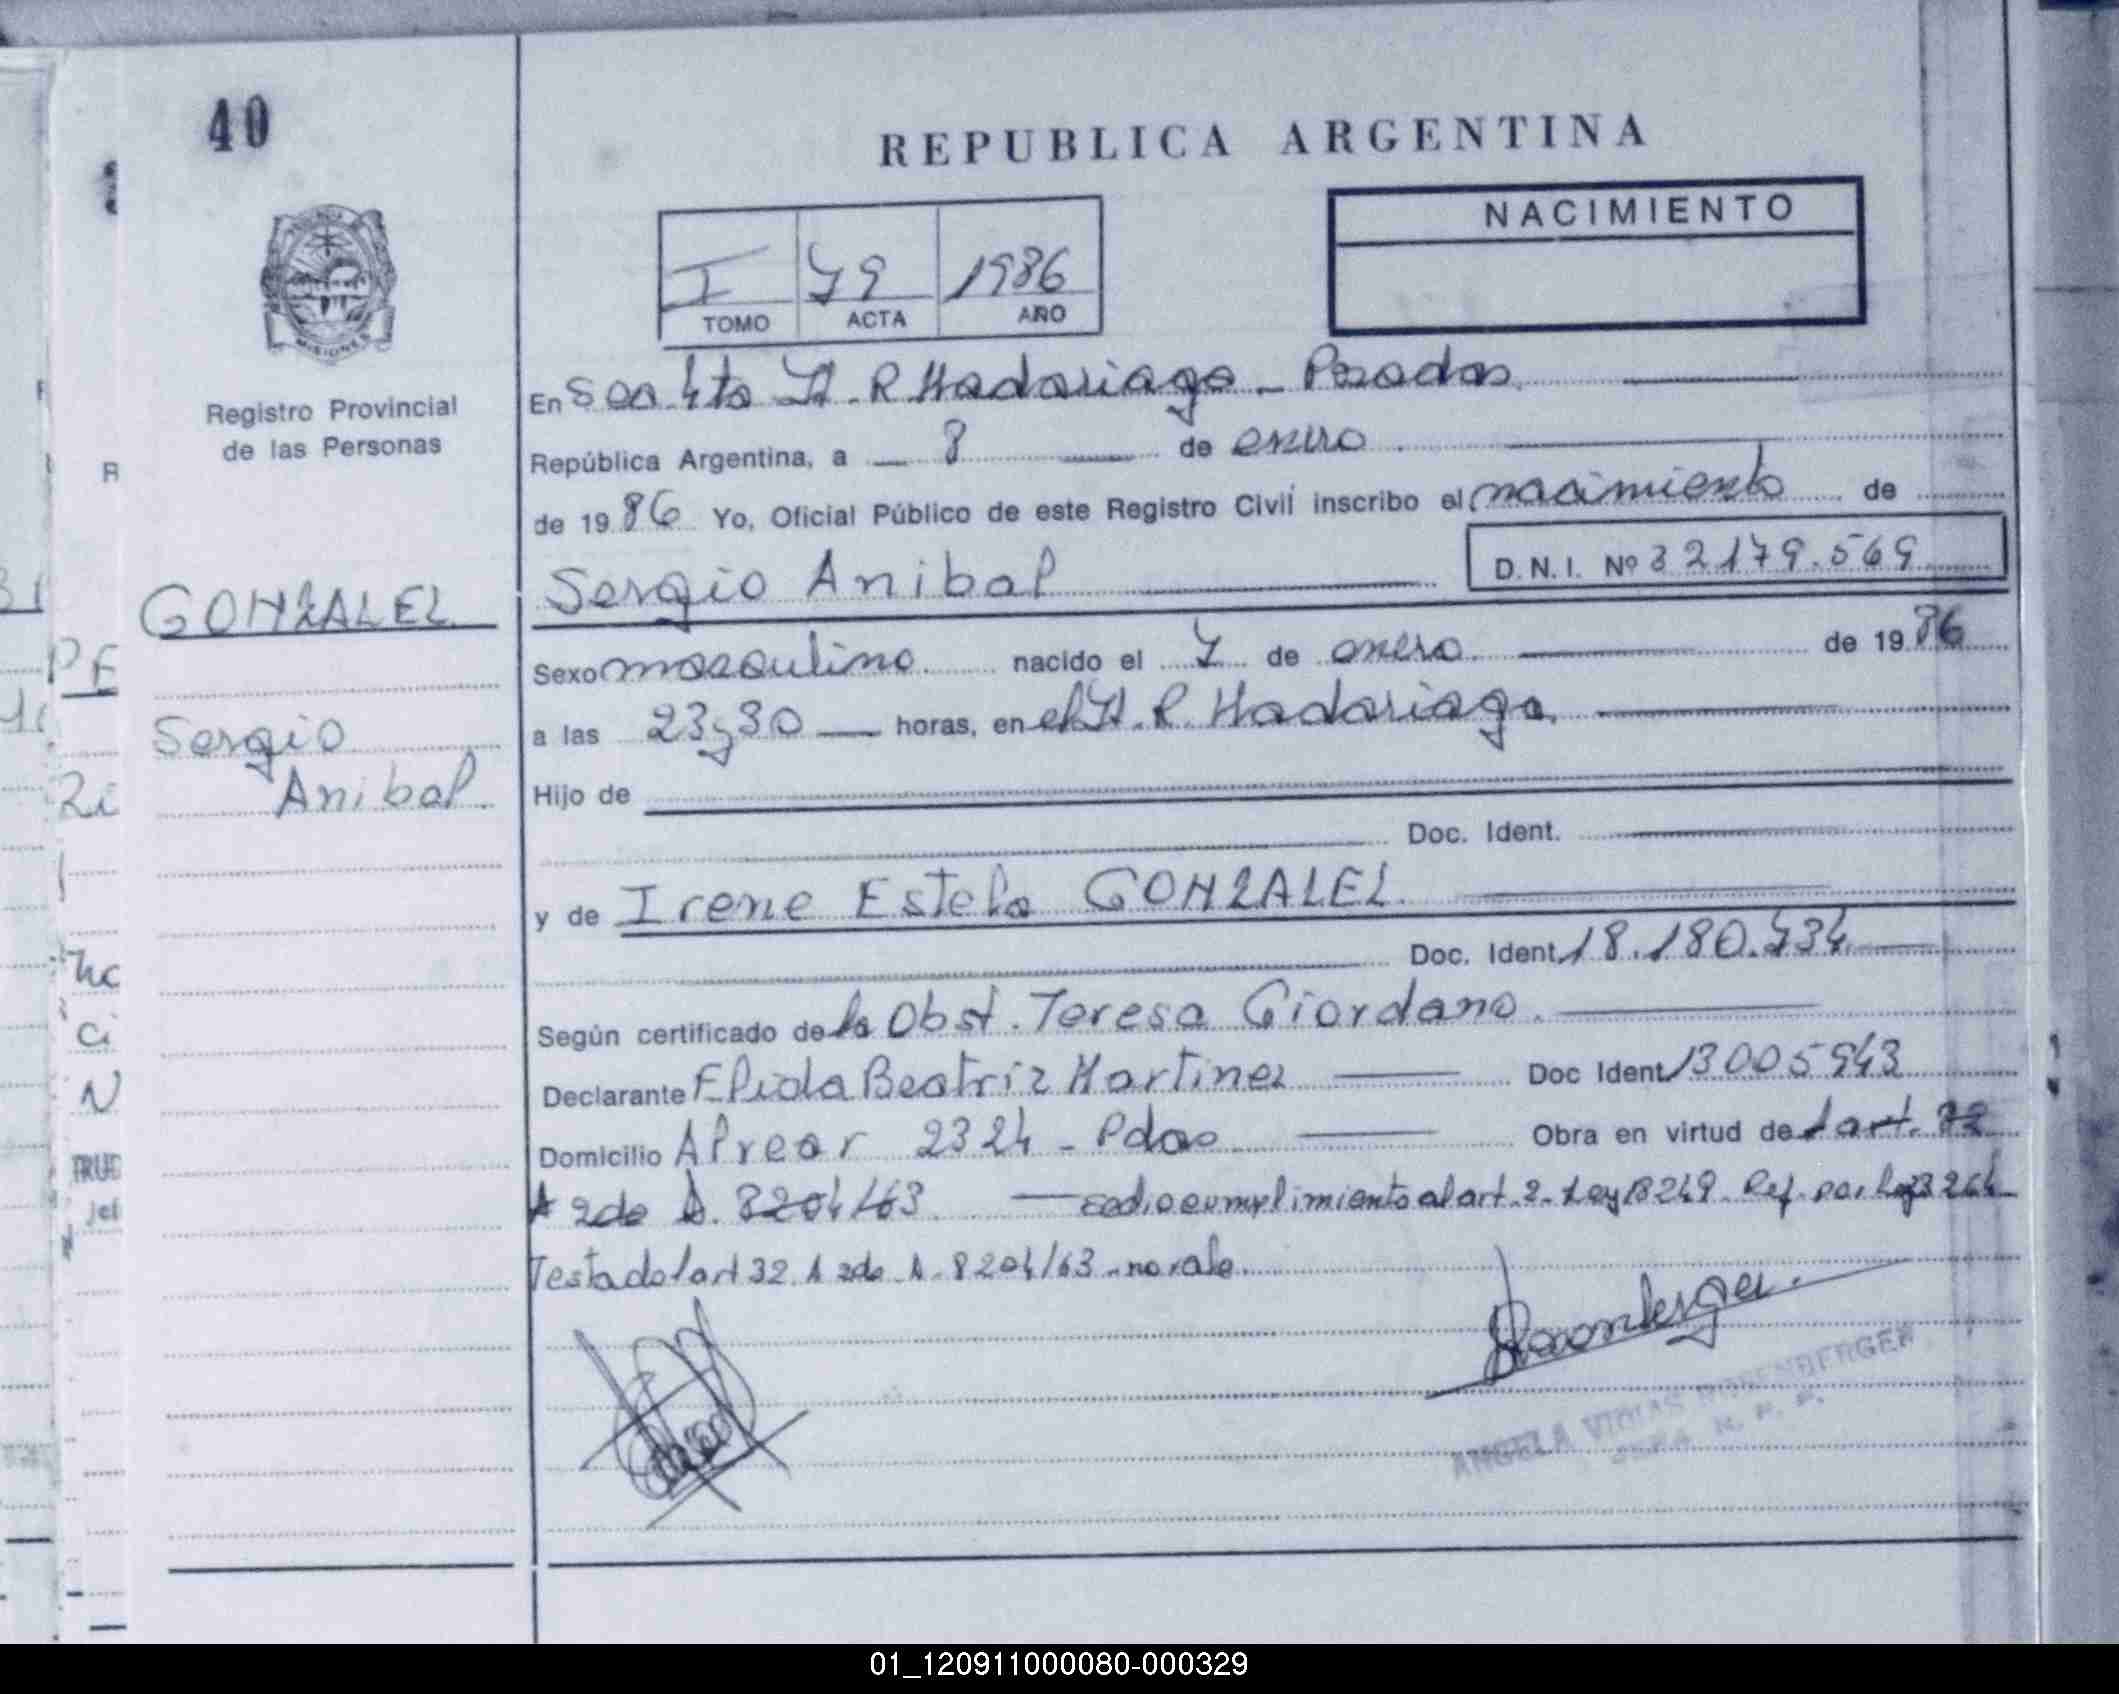 40
REPUBLICA ARGENTINA
NACIMIENTO
I 79 1986
TOMO ACTA AÑO
MISIONES
Registro Provincial
de las Personas
En Sec 4ta H. R. Madariaga - Posadas
República Argentina, a 8 de enero
de 19 86 Yo, Oficial Público de este Registro Civil inscribo el nacimiento de
Sergio Anibal D.N.I. Nº 32179.569
GONZALEZ
Sergio
Anibal
Sexo masculino nacido el 7 de enero de 19 86
a las 23 y 30 horas, en el H. R. Madariaga
Hijo de
Doc. Ident.
y de Irene Estela GONZALEZ
Doc. Ident. 18.180.734
Según certificado de la Obst. Teresa Giordano
Declarante Elida Beatriz Martinez Doc Ident 13005943
Domicilio Alvear 2324 - Pdas Obra en virtud de l art. 32
A 2do D. 8204/63 se dio cumplimiento al art. 2 - Ley 18249 Ref. por Ley 23264
Testado l art 32 A 2do D. 8204/63 - no vale
ANGELA
01_120911000080-000329